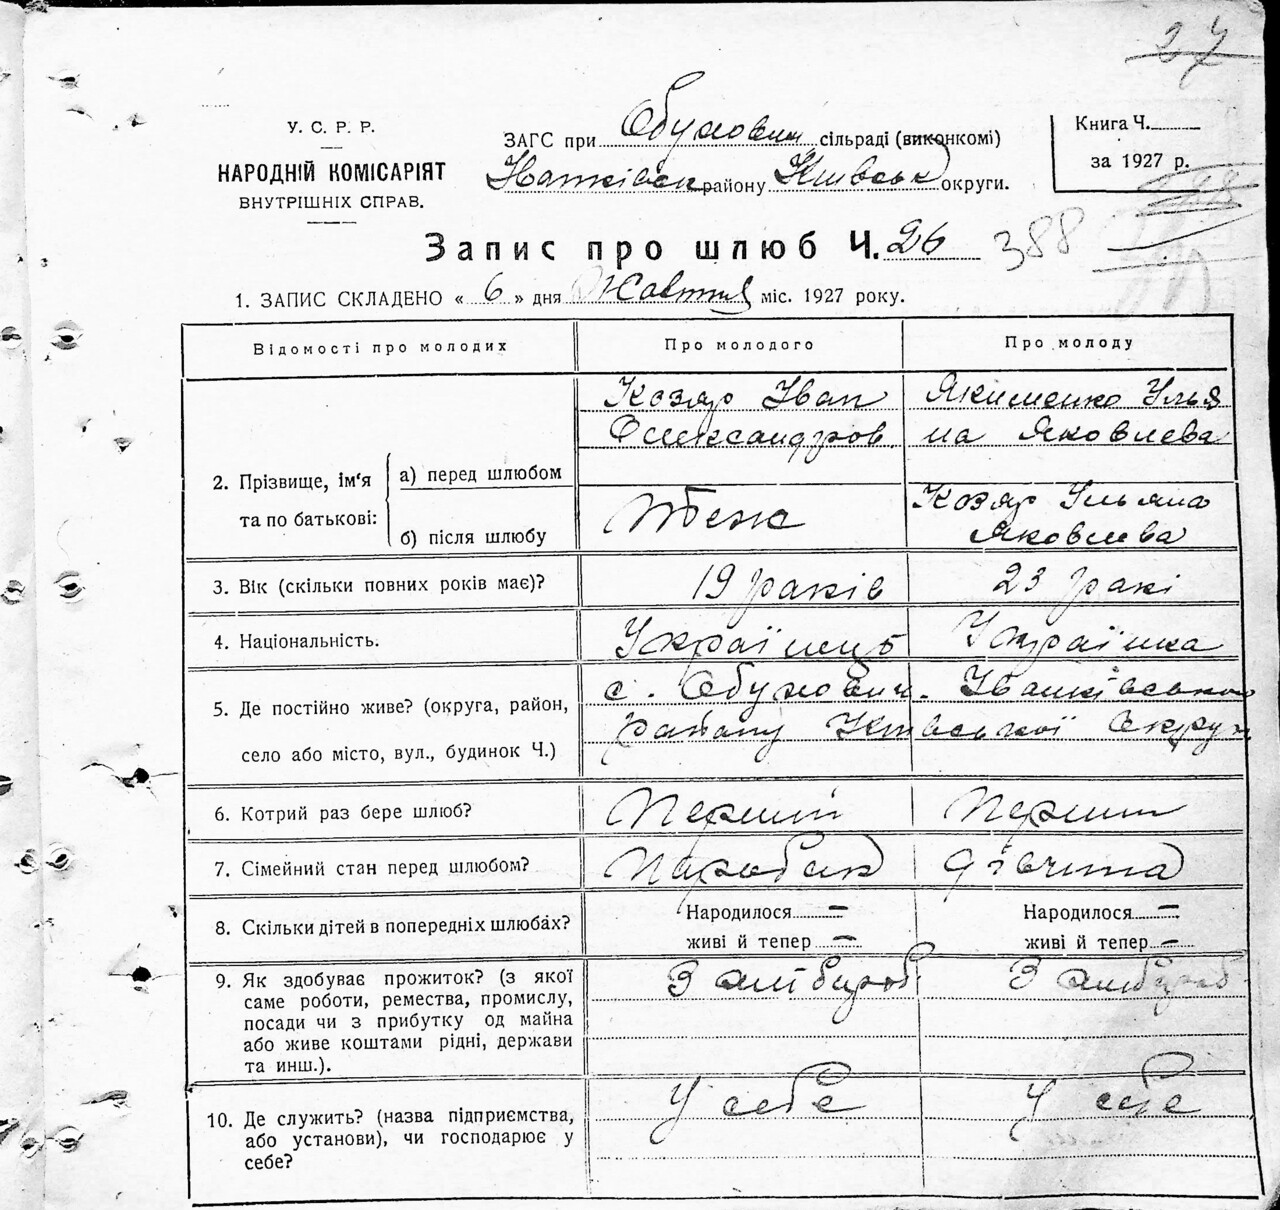 У. С. Р. Р.
НАРОДНІЙ КОМІСАРІЯТ
ВНУТРІШНІХ СПРАВ.
ЗАГС при Обухович сільраді (виконкомі)
району Київськ округи.
Книга Ч.
за 1927 р.
Запис про шлюб Ч. 26
388
1. ЗАПИС СКЛАДЕНО « 6 » дня Жовтня міс. 1927 року.
Відомості про молодих
Про молодого
Про молоду
2. Прізвище, ім'я та по батькові:
а) перед шлюбом
Козяр Іван
Олександров
Якименко Улья
на Яковлева
б) після шлюбу
теж
Козяр Ульяна
Яковлева
3. Вік (скільки повних років має)?
19 років
23 рокі
4. Національність.
Українець
Українка
5. Де постійно живе? (округа, район,
село або місто, вул., будинок Ч.)
с. Обухович. Іванківсько
району Київської Округ
6. Котрий раз бере шлюб?
Перший
Перший
7. Сімейний стан перед шлюбом?
Парубок
дівчина
8. Скільки дітей в попередніх шлюбах?
Народилося —
живі й тепер —
Народилося —
живі й тепер —
9. Як здобуває прожиток? (з якої
саме роботи, ремества, промислу,
посади чи з прибутку од майна
або живе коштами рідні, держави
та инш.).
З
З
10. Де служить? (назва підприємства,
або установи), чи господарює у
себе?
У себе
У себе